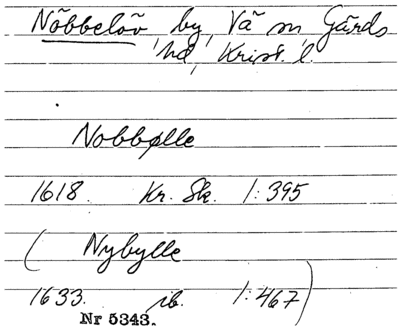 Nöbbelöv, by, Vä sn, Gärds
hd, Krist. l.
Nobbølle
1618. Kr. Sk. 1:395
( Nybylle
1633. ib. 1:467)
Nr 5343.